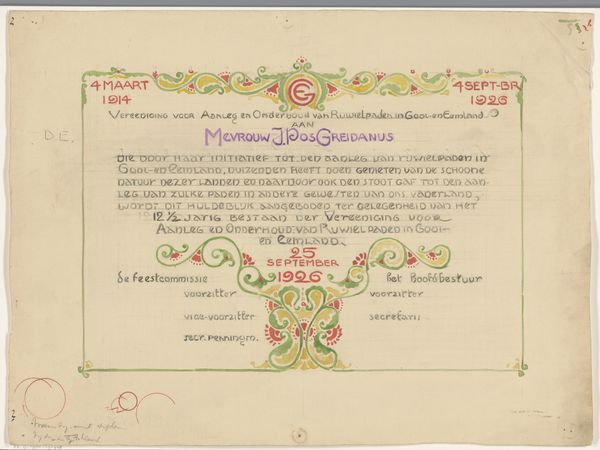 4 MAART
1914
GE
4 SEPT-BR
1926
Vereeniging voor Aanleg en Onderhoud van Rijwielpaden in Gooi- en Eemland
AAN
D.E.
Mevrouw J. Pos Greidanus
die door haar initiatief tot den aanleg van rijwielpaden in
Gooi- en Eemland, duizenden heeft doen genieten van de schoone
natuur dezer landen en daardoor ook den stoot gaf tot den aan-
leg van zulke paden in andere gewesten van ons vaderland,
wordt dit huldeblijk aangeboden ter gelegenheid van het
12½ jarig bestaan der Vereeniging voor
Aanleg en Onderhoud van Rijwielpaden in Gooi-
en Eemland.
25
SEPTEMBER
1926
de feestcommissie
het hoofdbestuur
voorzitter
voorzitter
vice-voorzitter
secretaris
secr. penningm.